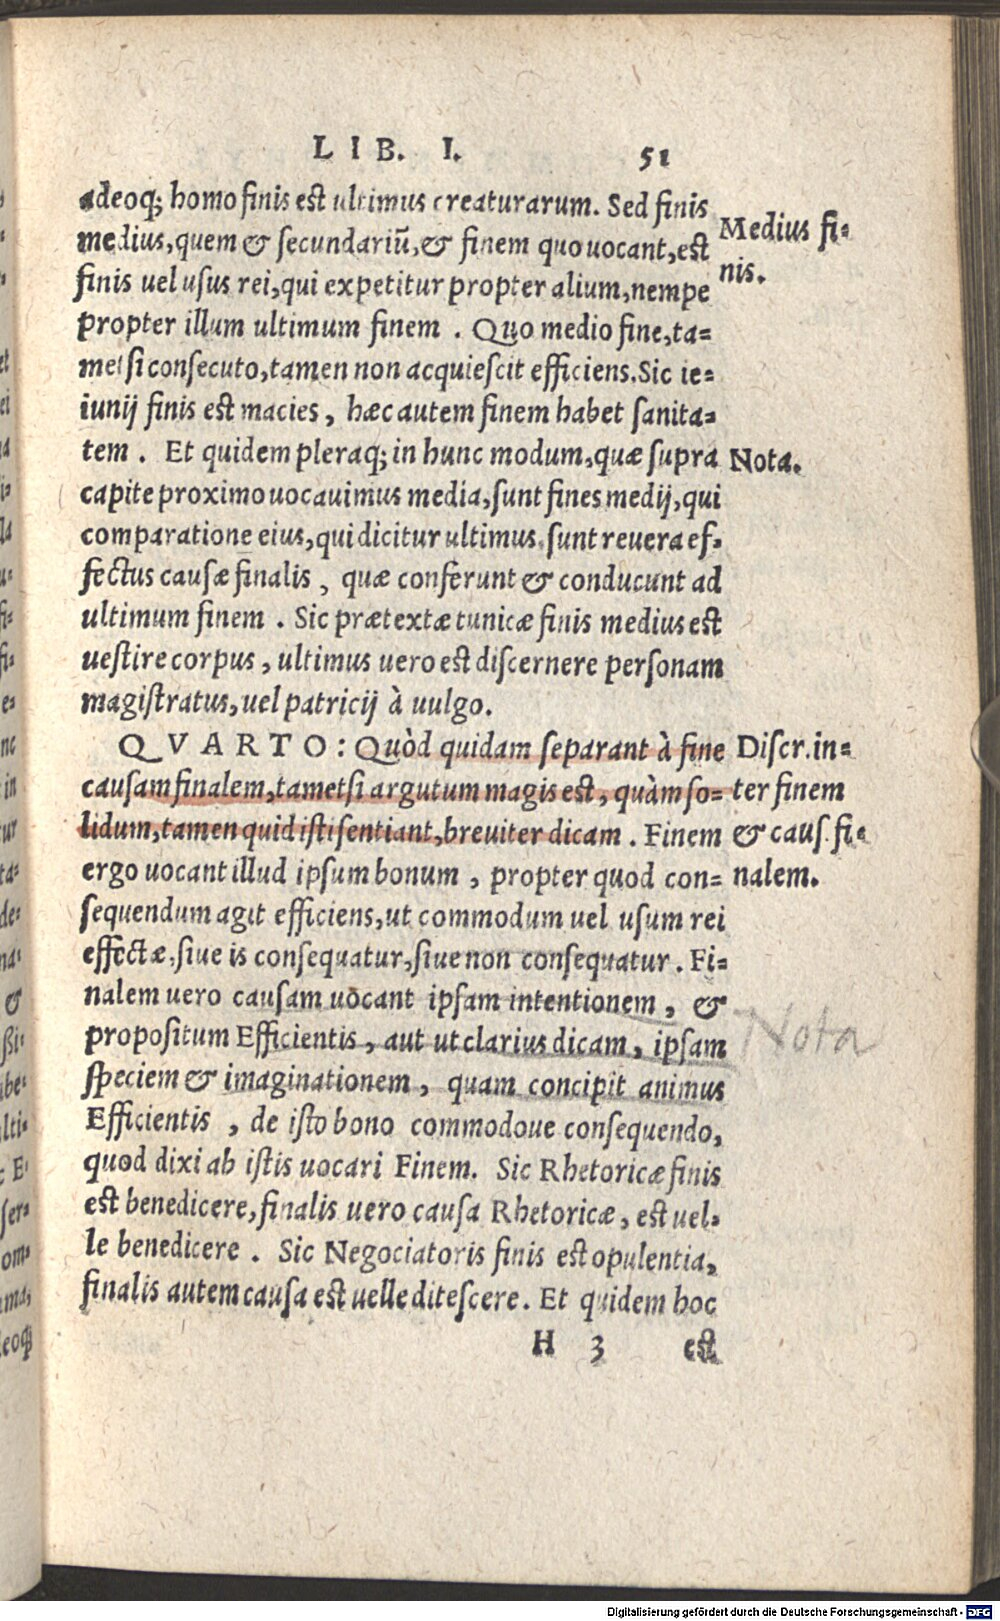 LIB. I. 51
adeoq; homo finis est ultimus creaturarum. Sed finis
medius, quem & secundariũ, & finem quo uocant, est
finis uel usus rei, qui expetitur propter alium, nempe
propter illum ultimum finem. Quo medio fine, ta-
metsi consecuto, tamen non acquiescit efficiens. Sic ie-
iunij finis est macies, hæc autem finem habet sanita-
tem. Et quidem pleraq; in hunc modum, quæ supra
capite proximo uocauimus media, sunt fines medij, qui
comparatione eius, qui dicitur ultimus, sunt reuera ef-
fectus causæ finalis, quæ conferunt & conducunt ad
ultimum finem. Sic prætextæ tunicæ finis medius est
uestire corpus, ultimus uero est discernere personam
magistratus, uel patricij à uulgo.
QVARTO: Quòd quidam separant à fine
causam finalem, tametsi argutum magis est, quàm so-
lidum, tamen quid isti sentiant, breuiter dicam. Finem
ergo uocant illud ipsum bonum, propter quod con-
sequendum agit efficiens, ut commodum uel usum rei
effectæ, siue is consequatur, siue non consequatur. Fi-
nalem uero causam uocant ipsam intentionem, &
propositum Efficientis, aut ut clarius dicam, ipsam
speciem & imaginationem, quam concipit animus
Efficientis, de isto bono commodoue consequendo,
quod dixi ab istis uocari Finem. Sic Rhetoricæ finis
est benedicere, finalis uero causa Rhetoricæ, est uel-
le benedicere. Sic Negociatoris finis est opulentia,
finalis autem causa est uelle ditescere. Et quidem hoc
H 3 est
Medius fi-
nis.
Nota.
Discr. in-
ter finem
& caus. fi-
nalem.
Nota
Digitalisierung gefördert durch die Deutsche Forschungsgemeinschaft - DFG